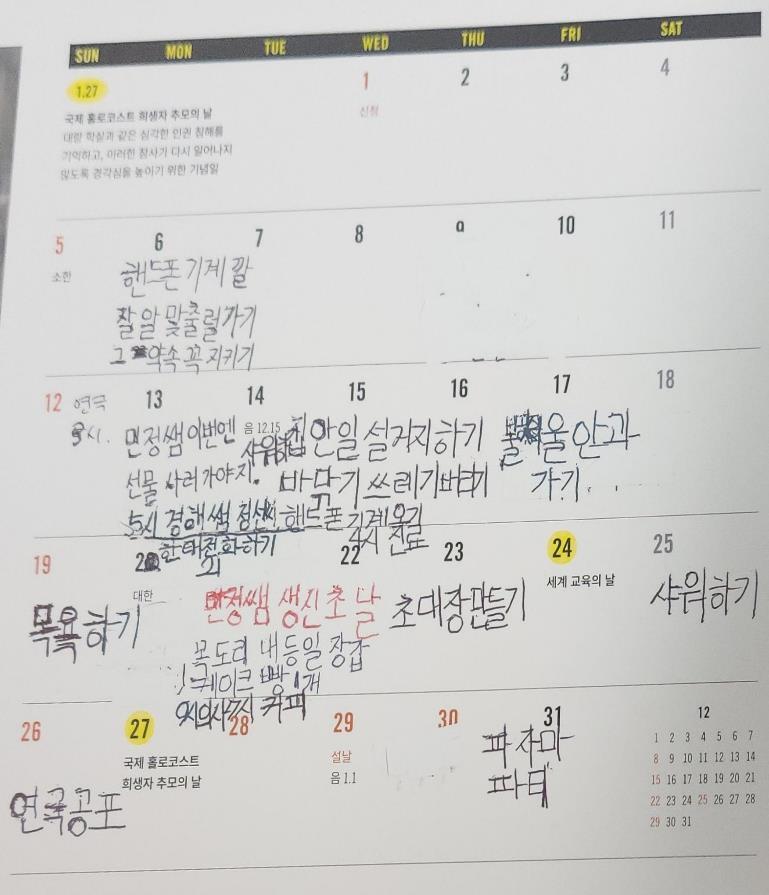 SUN MON TUE WED THU FRI SAT
1.27
국제 홀로코스트 희생자 추모의 날
대량 학살과 같은 심각한 인권 침해를
기억하고, 이러한 참사가 다시 일어나지
않도록 경각심을 높이기 위한 기념일
1 2 3 4
신정
5 6 7 8 9 10 11
소한
핸드폰 기계 깔
잘 알 맞출럴 가기
그 약속 꼭 지키기
12 연극 13 14 15 16 17 18
시.
음 12.15
민정쌤 이번엔
선물 사러 가야지.
5시 경해쌤
한태 전화하기
집안일 설거지하기
바꾸기 쓰레기 버리기
핸드폰 기계 옮김
4시 진료
울 안과
가기
19 20 21 22 23 24 25
대한
세계 교육의 날
목욕하기
민정쌤 생진 초 날
목도리 내 등일 장갑
케이크 빵 1개
커피
초대장 만들기
샤워하기
26 27 28 29 30 31
국제 홀로코스트
희생자 추모의 날
설날
음 1.1
연극공포
파자마
파티
12
1 2 3 4 5 6 7
8 9 10 11 12 13 14
15 16 17 18 19 20 21
22 23 24 25 26 27 28
29 30 31